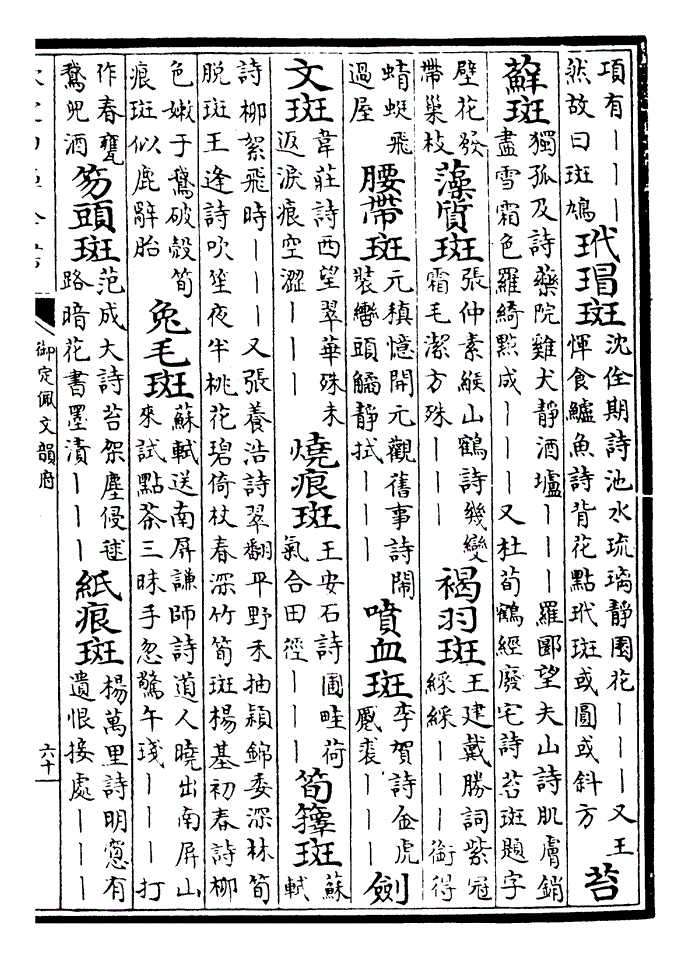 項有｜｜｜然故曰斑鳩玳瑁斑沈佺期詩池水琉璃靜園花｜｜｜又王惲食鱸魚詩背花點玳斑或圓或斜方苔
蘚斑獨孤及詩藥院雞犬靜酒壚｜｜｜羅鄴望夫山詩肌膚銷盡雪霜色羅綺點成｜｜｜又杜荀鶴經廢宅詩苔斑題字
壁花發帶巢枝藻質斑張仲素緱山鶴詩幾變霜毛潔方殊｜｜｜褐羽斑王建戴勝詞紫冠綵綵｜｜｜銜得
蜻蜓飛過屋腰帶斑元稹憶開元觀舊事詩鬧裝轡頭䚩靜拭｜｜｜噴血斑李賀詩金虎蹙裘｜｜｜劍
文斑韋莊詩西望翠華殊未返淚痕空澀｜｜｜燒痕斑王安石詩圃畦荷氣合田徑｜｜｜筍籜斑蘇軾
詩柳絮飛時｜｜｜又張養浩詩翠翻平野禾抽穎錦委深林筍脫斑王逢詩吹笙夜半桃花碧倚杖春深竹筍斑楊基初春詩柳
色嫩于鵞破殼筍痕斑似鹿辭胎兔毛斑蘇軾送南屏謙師詩道人曉出南屏山來試點茶三昧手忽驚午琖｜｜｜打
作春甕鵞兒酒笏頭斑范成大詩苔架塵侵毬路暗花書墨漬｜｜｜紙痕斑楊萬里詩明窻有遺恨接處｜｜｜
御定佩文韻府
六十